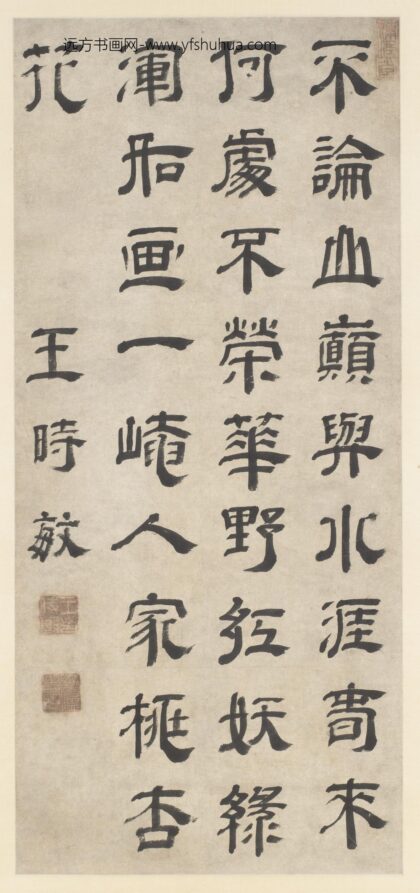 远方书画网-www.yfshuhua.com
不論山巔與水涯春来
何處不榮華野紅妖綠
渾如画一崦人家桃杏
花
王時敏